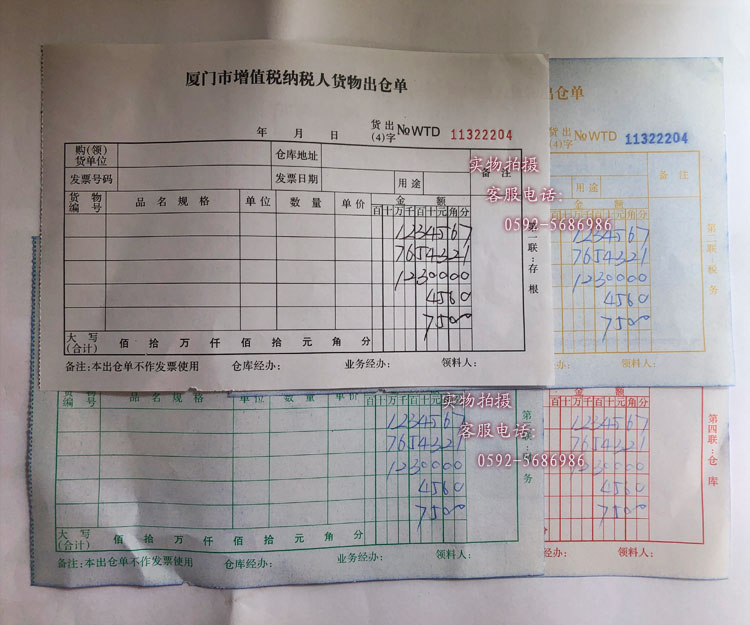 厦门市增值税纳税人货物出仓单
年 月 日 货出(4)字 №WTD 11322204
购(领)货单位 仓库地址 备注
发票号码 发票日期 用途
货物编号 品名规格 单位 数量 单价 金额
百 十 万 千 百 十 元 角 分
1234567
7654321
1230000
4560
7500
大写(合计) 佰 拾 万 仟 佰 拾 元 角 分
备注:本出仓单不作发票使用 仓库经办: 业务经办: 领料人:
第一联:存根
实物拍摄
客服电话:
0592-5686986
出仓单
货出(4)字 №WTD 11322204
用途 备注
金额
百 十 万 千 百 十 元 角 分
1234567
7654321
1230000
4560
7500
角 分
办: 领料人:
第二联:税务
货物编号 品名规格 单位 数量 单价 金额
百 十 万 千 百 十 元 角 分
1234567
7654321
1230000
4560
7500
大写(合计) 佰 拾 万 仟 佰 拾 元 角 分
备注:本出仓单不作发票使用 仓库经办: 业务经办: 领料人:
实物拍摄
客服电话:
0592-5686986
金额
百 十 万 千 百 十 元 角 分
1234567
7654321
1230000
4560
7500
角 分
办: 领料人:
第四联:仓库